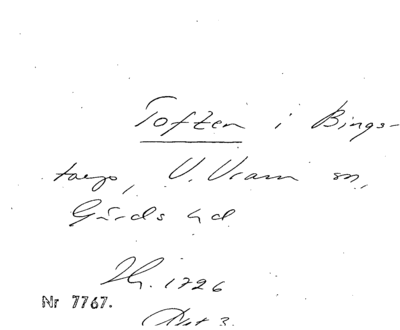 Toften i Bings-
torp, V. Vram sn,
Gärds hd
Th. 1726
Nr 7767.